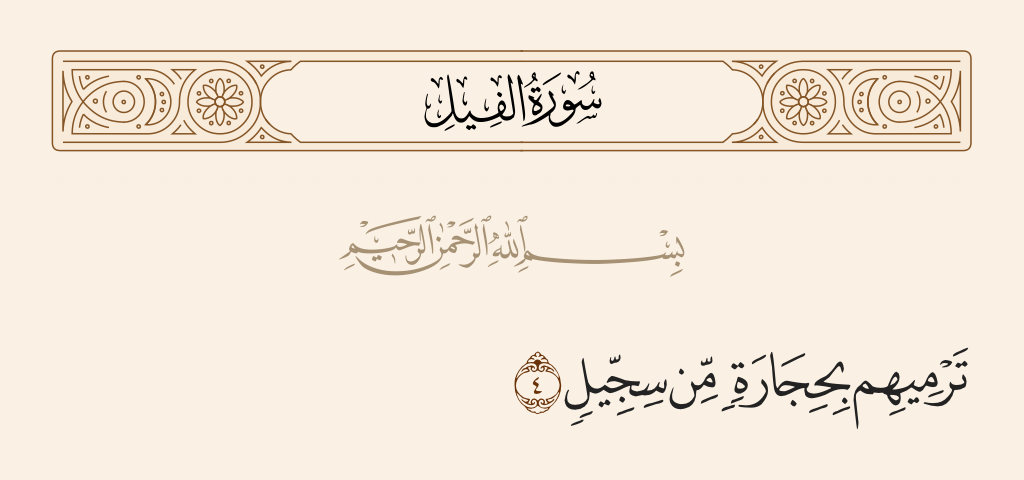 سُورَةُ الفِيلِ
بِسْمِ ٱللَّهِ ٱلرَّحْمَٰنِ ٱلرَّحِيمِ
تَرْمِيهِم بِحِجَارَةٍ مِّن سِجِّيلٍ ٤